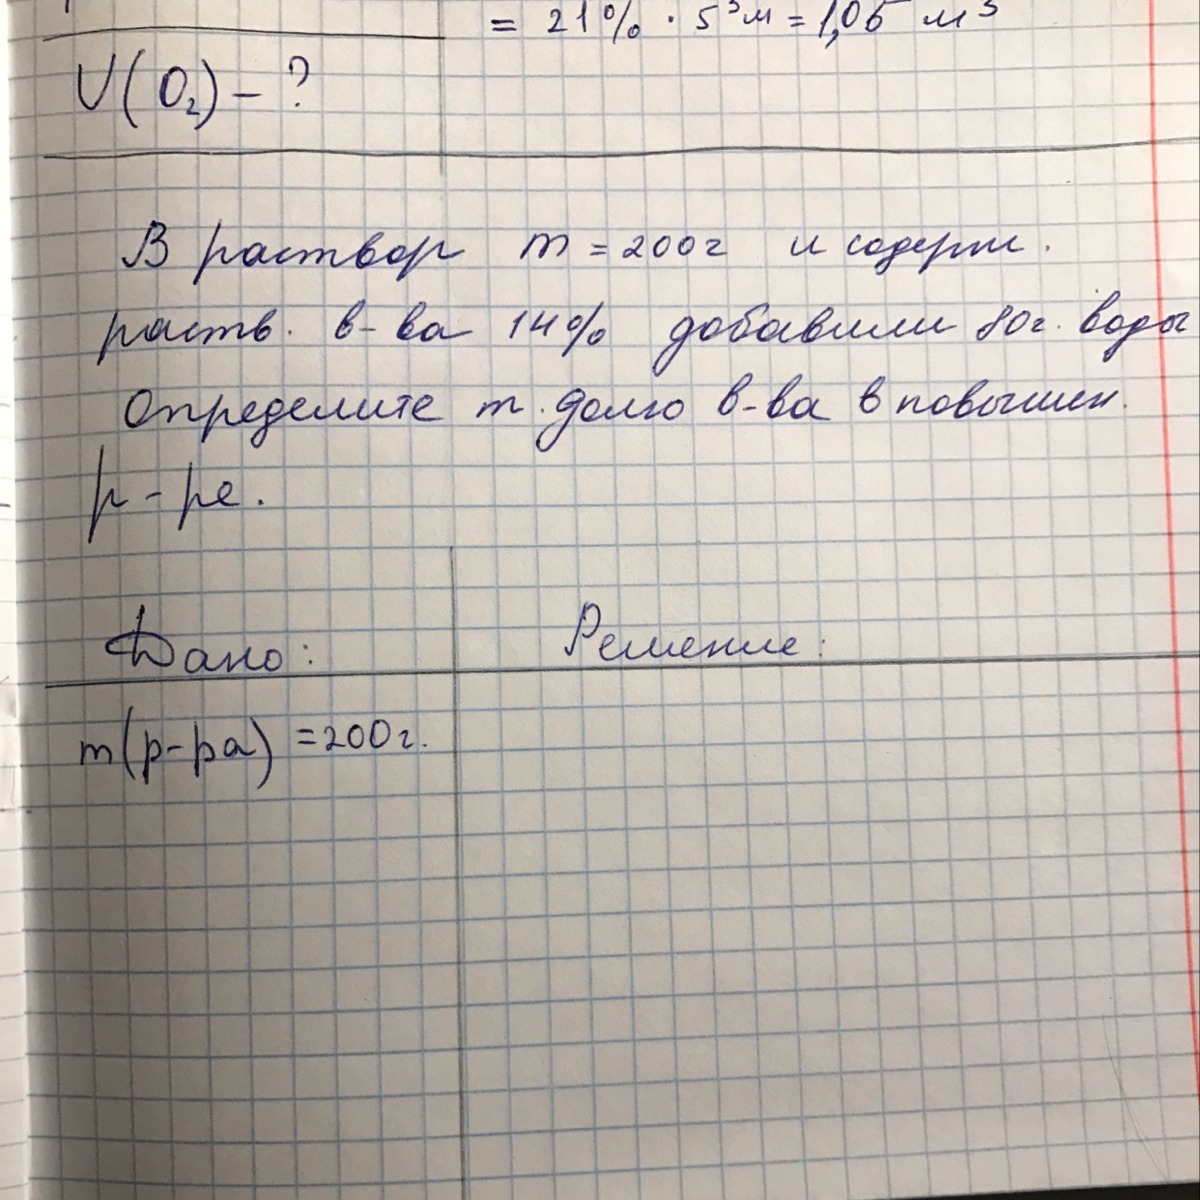 = 21% · 5³м = 1,05 м³
V(O₂) - ?
В раствор m = 200г и содерж.
раств. в-ва 14% добавили 80г. воды
Определите m. долю в-ва в повышен.
р-ре.
Дано: Решение:
m(р-ра) = 200г.